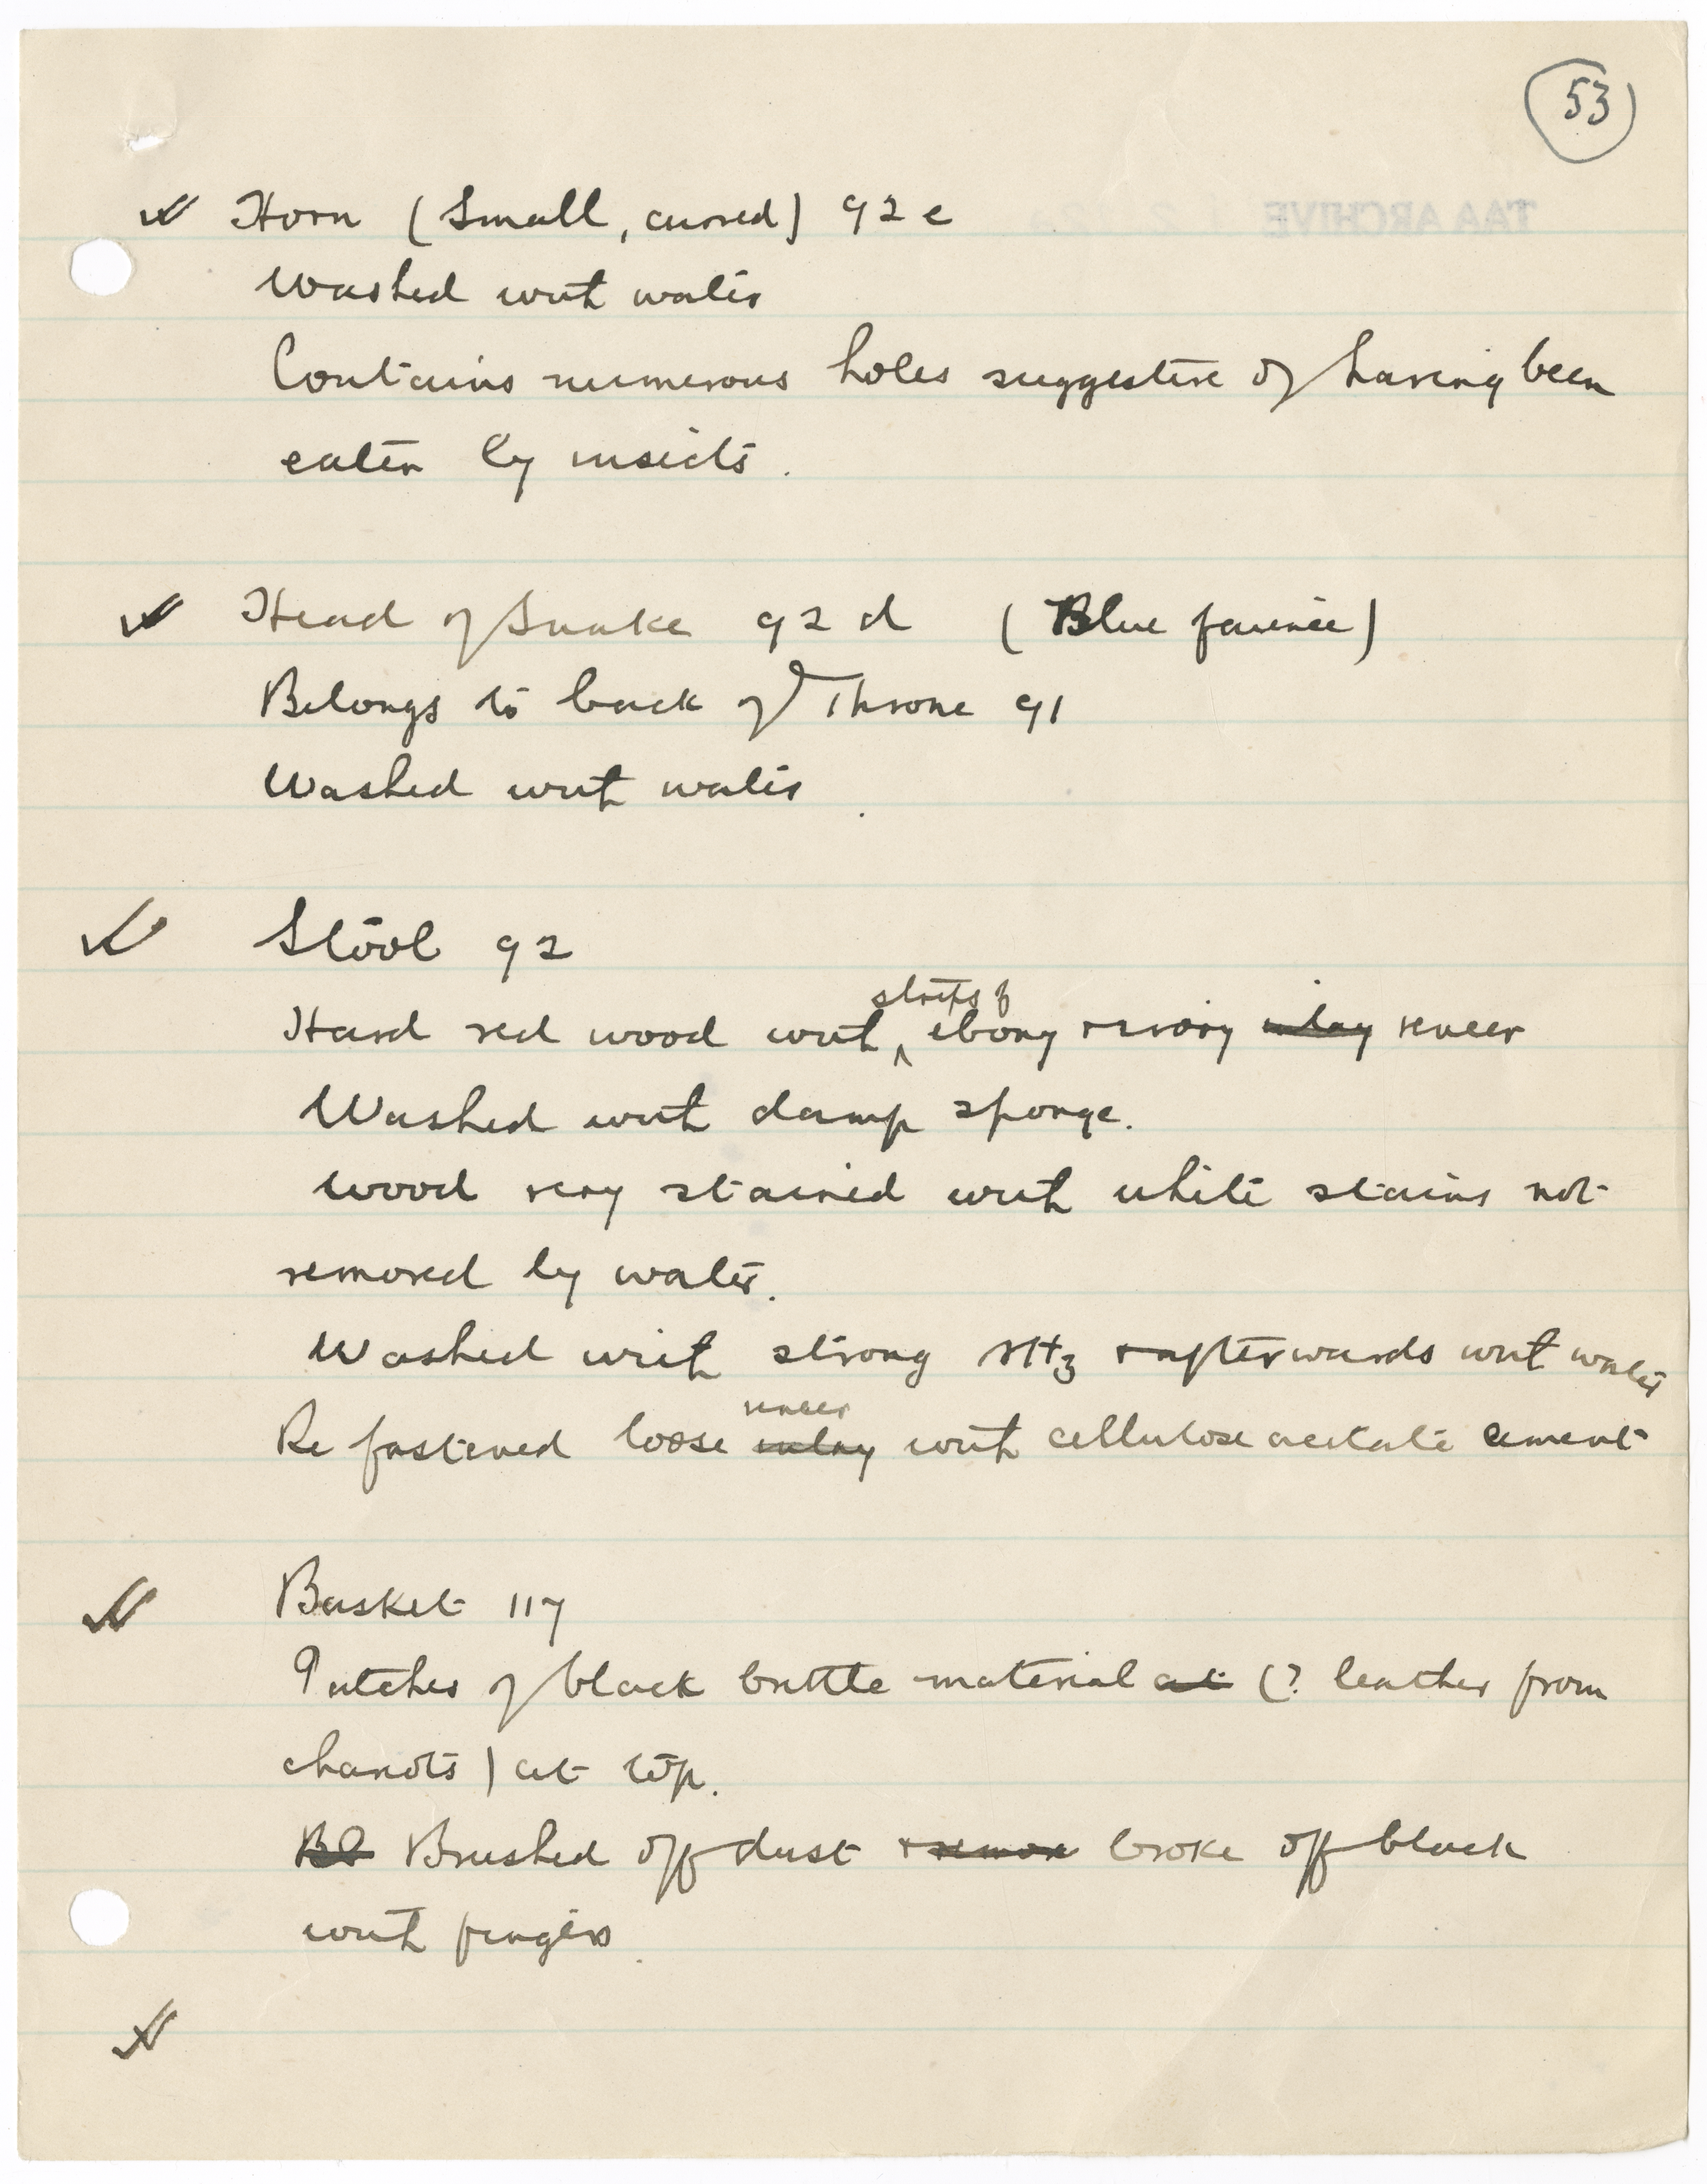 53
TAA ARCHIVE
Horn (Small, curved) 92 e
Washed with water
Contains numerous holes suggestive of having been
eaten by insects.
Head of Snake 92 d (Blue faience)
Belongs to back of Throne 91
Washed with water.
Stool 92
strips of
Hard red wood with ebony + ivory inlay veneer
Washed with damp sponge.
Wood very stained with white stains not
removed by water.
Washed with strong NH3 + afterwards with water
veneer
Re fastened loose inlay with cellulose acetate cement
Basket 117
Patches of black brittle material at (? leather from
chariots) at top.
Bl Brushed off dust + remov broke off black
with fingers.